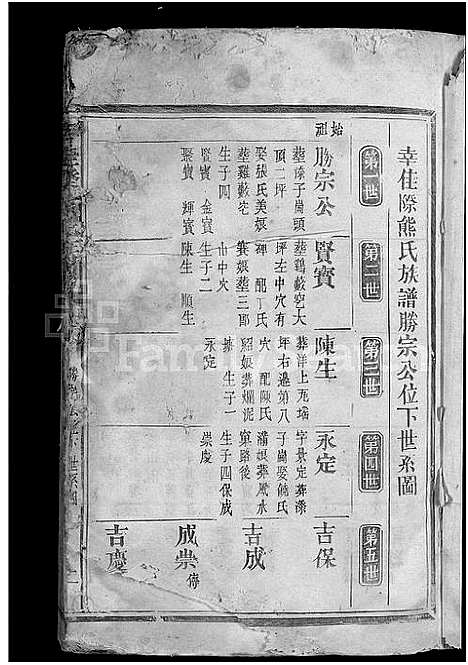 幸佳際熊氏族譜勝宗公位下世系圖
第一世
第二世
第三世
第四世
第五世
始祖
勝宗公
葬漆子崗頭
頂二坪
娶張氏美娘
葬雞藪屻
生子四
賢寶 金寶
聚寶 輝寶
賢寳
葬鷄藪屻大
坪左中穴有
碑 配丁氏
葬三郎
中穴
生子二
陳生 順生
陳生
葬洋上瓦瑶
坪右邉第八
穴 配陳氏
娘葬爛泥
生子一
永定
永定
字景定葬漆
子崗娶鮑氏
滿娘葬風水
窠路後
生子四保成
崇慶
吉保
吉成
成崇傳
吉慶
FamilySearch